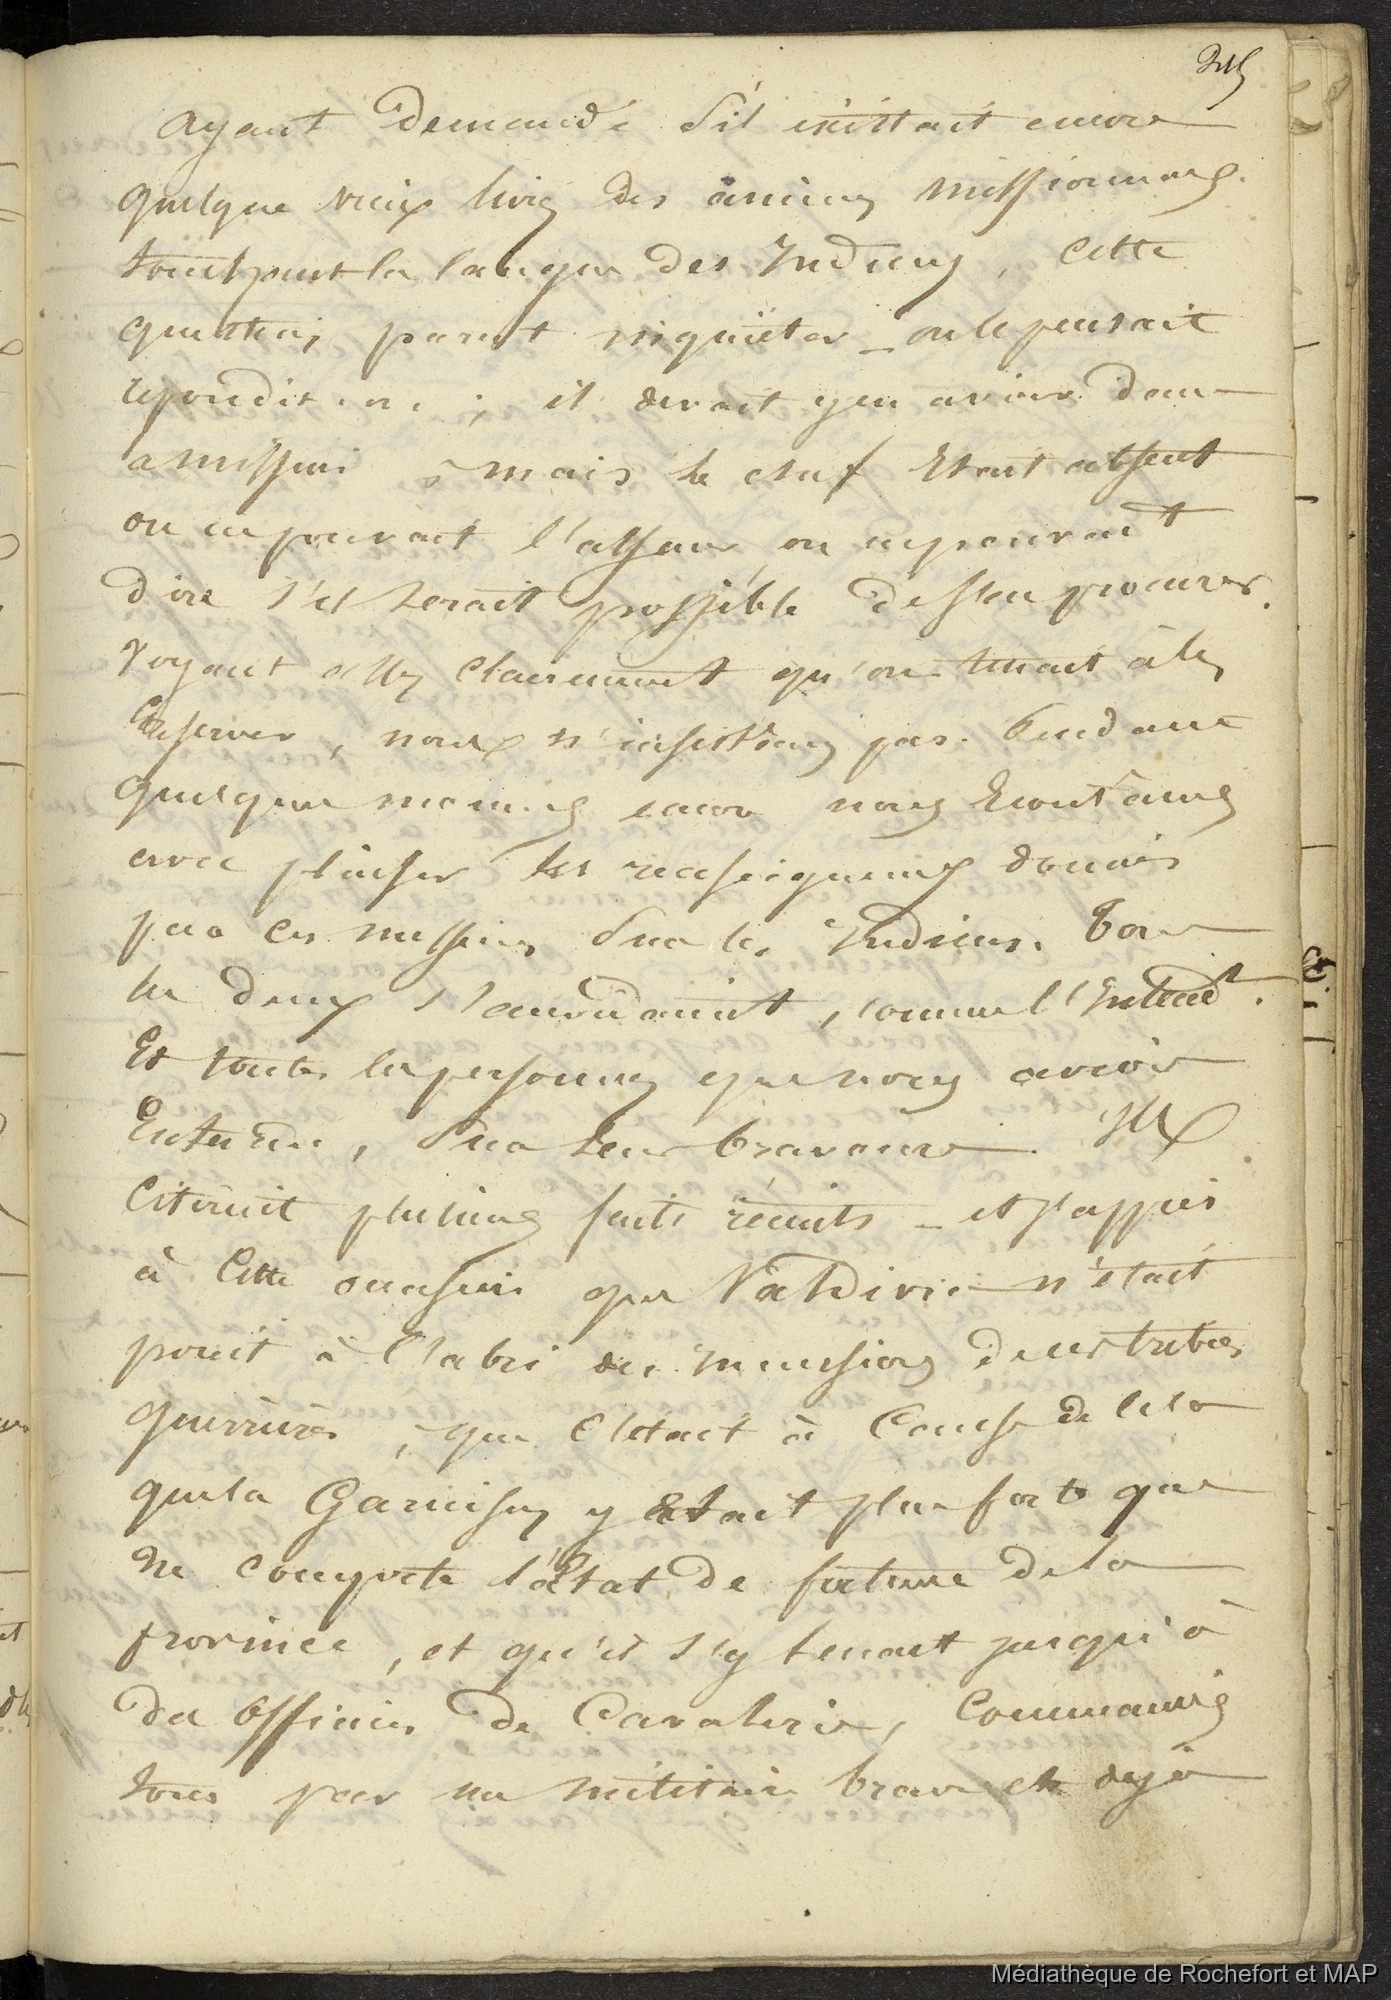 ayant demandé s'il existait encore
quelque vieux livre des anciens missionnaires
touchant la langue des Indiens, cette
question parut inquiéter _ on le pensait
répondit on ; il devait y en avoir dans
la mission ; mais le chef était absent
on ne pouvait l'assurer, on ne pouvait
dire s'il serait possible de s'en procurer.
Voyant assez clairement qu'on tenait à les
conserver, nous n'insistâmes pas. Pendant
quelques moments encore nous écoutâmes
avec plaisir les renseignemens donnés
par ces messieurs sur les Indiens. Tous
les deux s'accordaient, comme l'Intendt.
Et toutes les personnes que nous avions
Entendu, sur leur bravoure. Ils
citèrent plusieurs faits récents _ et j'appris
à cette occasion que Valdivia n'était
point à l'abri des incursions de ces tribus
guerrières, que c'était à cause de cela
que la Garnison y était plus forte que
ne comporte l'état de fortune de la
province, et qu'il s'y tenait jusqu'à
des officiers de Cavalerie, commandés
tous par un militaire brave et déjà
Médiathèque de Rochefort et MAP